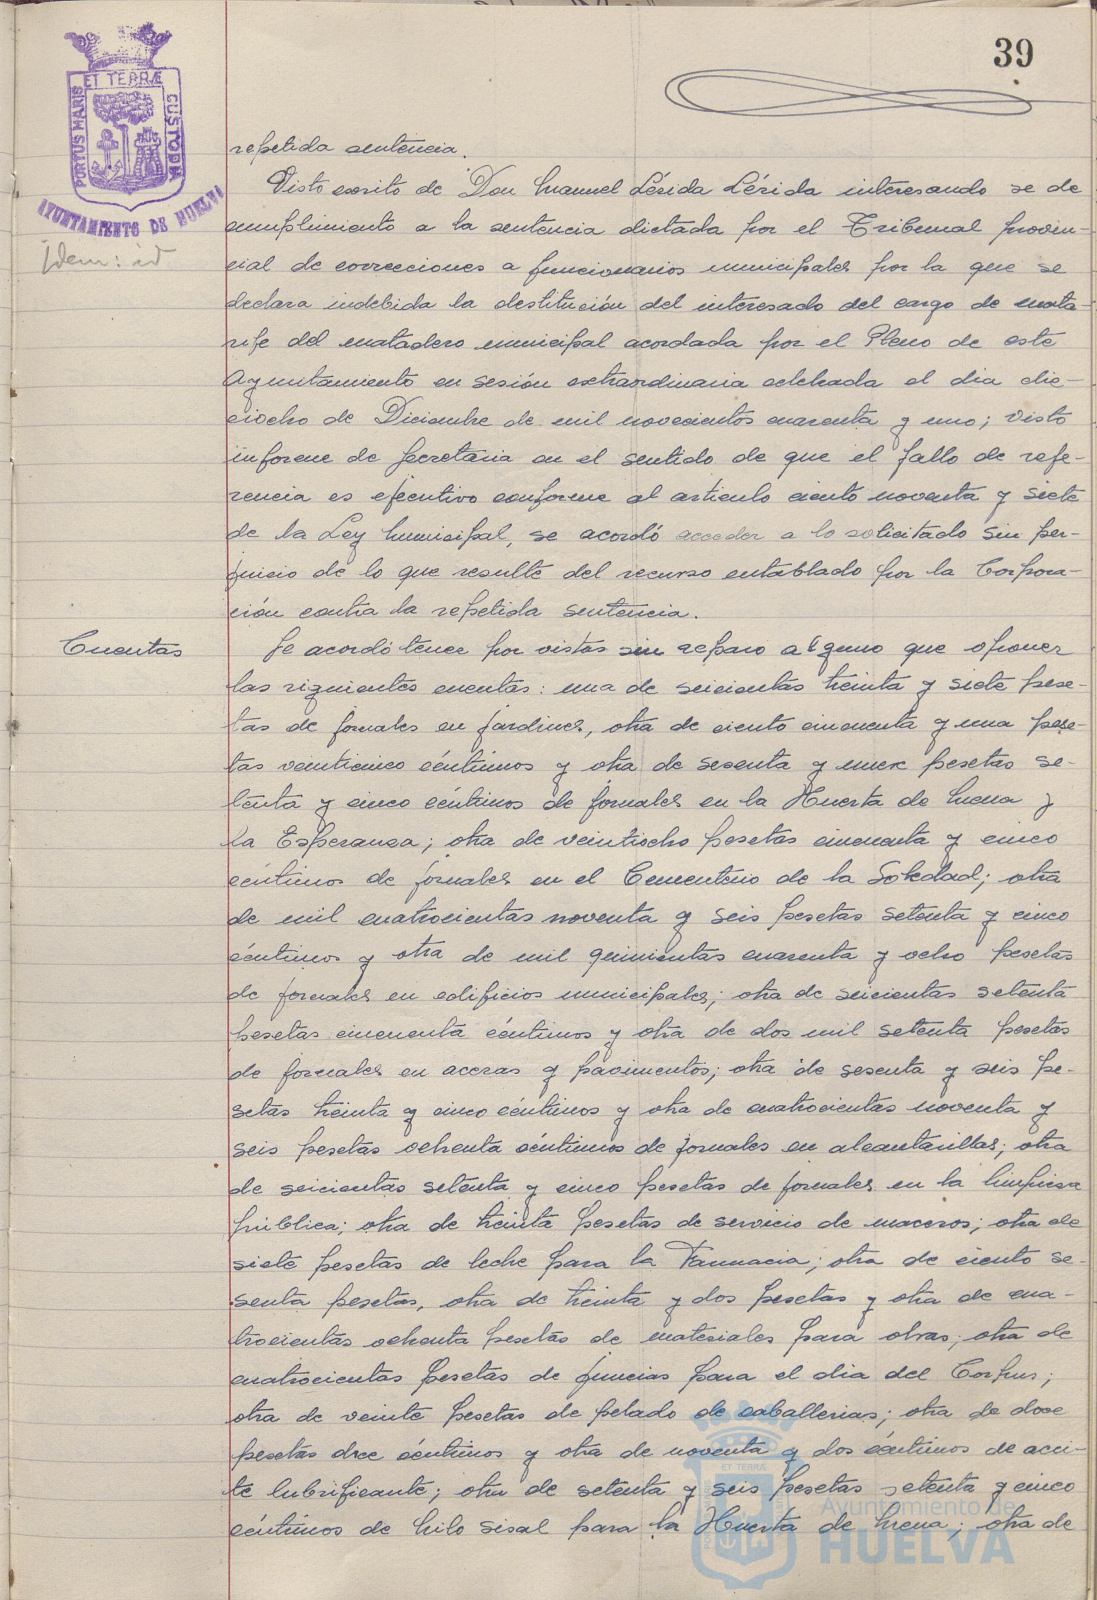 39
PORTUS MARIS ET TERRÆ CUSTODIA
AYUNTAMIENTO DE HUELVA
Idem: id
repetida sentencia.
Visto escrito de Don Manuel Lérida Lérida interesando se de
cumplimiento a la sentencia dictada por el Tribunal provin-
cial de correcciones a funcionarios municipales por la que se
declara indebida la destitución del interesado del cargo de mata-
rife del matadero municipal acordada por el Pleno de este
Ayuntamiento en sesión extraordinaria celebrada el dia die-
ciocho de Diciembre de mil novecientos cuarenta y uno; visto
informe de Secretaria en el sentido de que el fallo de refe-
rencia es ejecutivo conforme al articulo ciento noventa y siete
de la Ley Municipal, se acordó acceder a lo solicitado sin per-
juicio de lo que resulte del recurso entablado por la Corpora-
ción contra la repetida sentencia.
Cuentas
Se acordó tener por vistas sin reparo alguno que oponer
las siguientes cuentas: una de seicientas treinta y siete pese-
tas de jornales en jardines, otra de ciento cincuenta y una pese-
tas veinticinco céntimos y otra de sesenta y nueve pesetas se-
tenta y cinco céntimos de jornales en la Huerta de Mena y
la Esperanza; otra de veintiocho pesetas cincuenta y cinco
céntimos de jornales en el Cementerio de la Soledad; otra
de mil cuatrocientas noventa y seis pesetas setenta y cinco
céntimos y otra de mil quinientas cuarenta y ocho pesetas
de jornales en edificios municipales; otra de seicientas setenta
pesetas cincuenta céntimos y otra de dos mil setenta pesetas
de jornales en aceras y pavimentos; otra de sesenta y seis pe-
setas treinta y cinco céntimos y otra de cuatrocientas noventa y
seis pesetas ochenta céntimos de jornales en alcantarillas; otra
de seicientas setenta y cinco pesetas de jornales en la limpieza
pública; otra de treinta pesetas de servicio de maceros; otra de
siete pesetas de leche para la Farmacia; otra de ciento se-
senta pesetas, otra de treinta y dos pesetas y otra de cua-
trocientas ochenta pesetas de materiales para obras; otra de
cuatrocientas pesetas de juncias para el dia del Corpus;
otra de veinte pesetas de pelado de caballerias; otra de doce
pesetas doce céntimos y otra de noventa y dos céntimos de acei-
te lubrificante; otra de setenta y seis pesetas setenta y cinco
céntimos de hilo sisal para la Huerta de Mena; otra de
ET TERRÆ
Ayuntamiento de
HUELVA